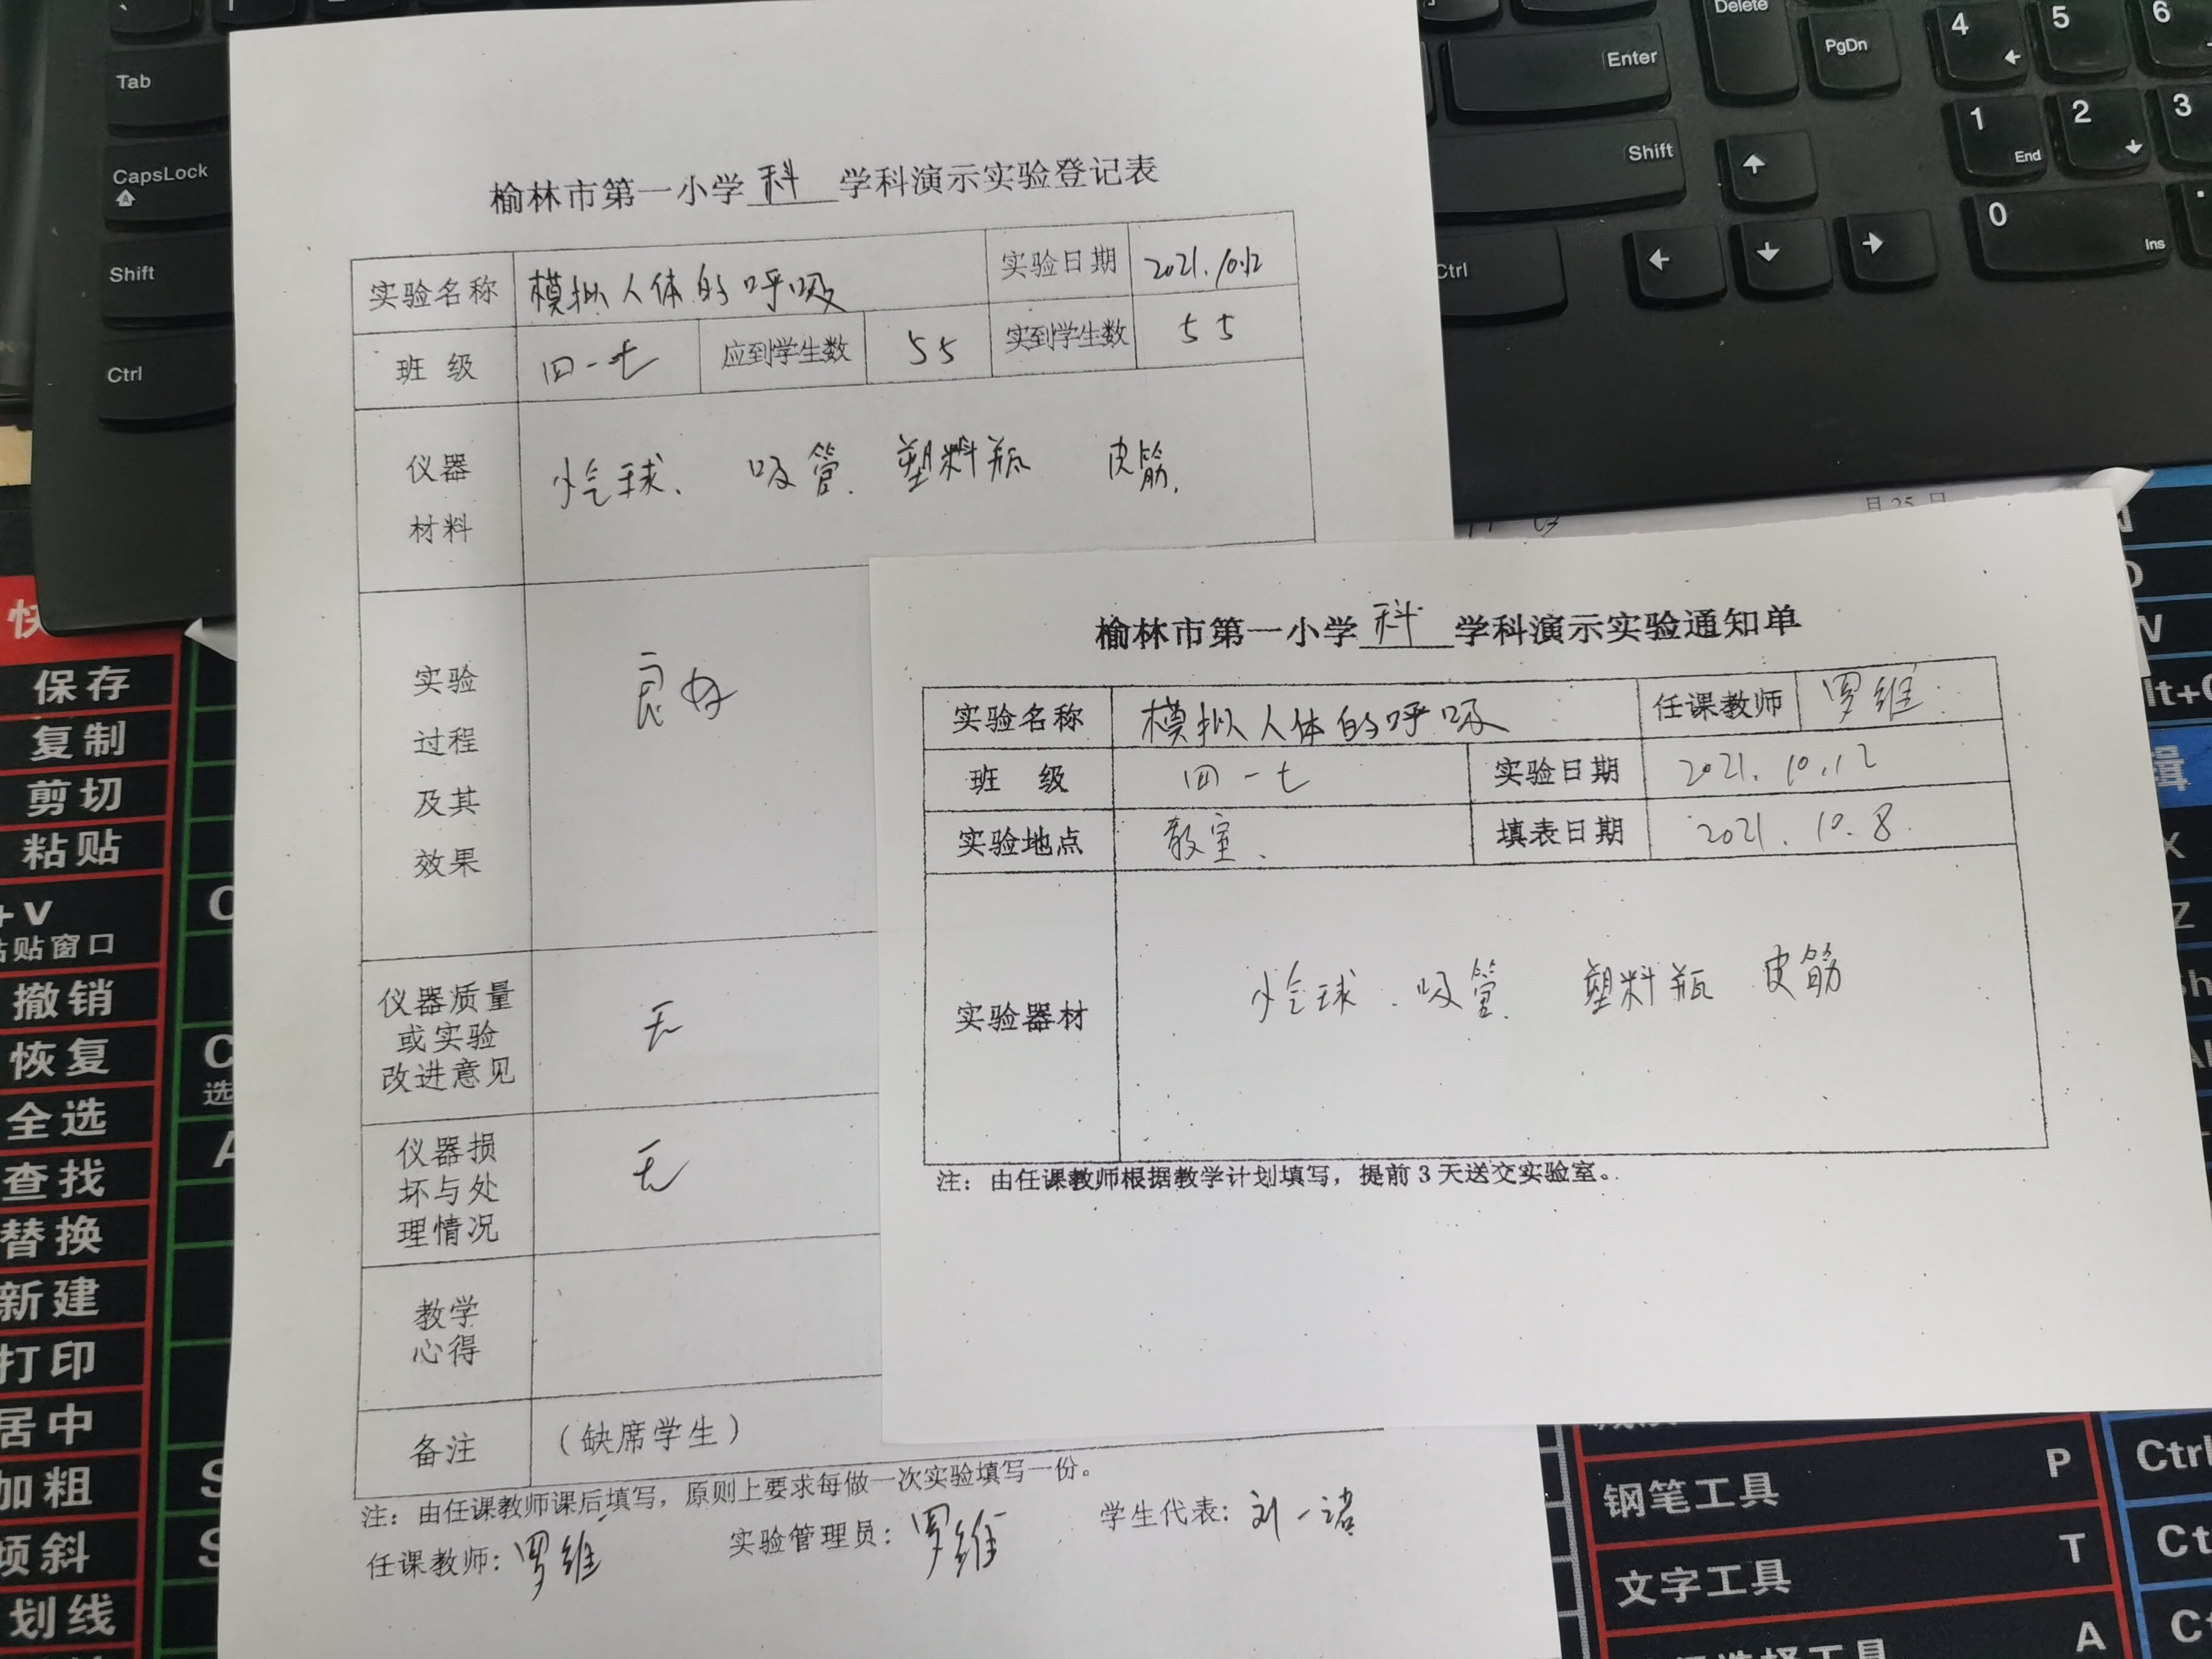 榆林市第一小学 科 学科演示实验登记表
实验名称 模拟人体的呼吸 实验日期 2021.10.12
班 级 四一七 应到学生数 55 实到学生数 55
仪器 材料 小气球、 吸管、 塑料瓶 皮筋.
实验
过程
及其
效果
良好
仪器质量
或实验
改进意见
无
仪器损
坏与处
理情况
无
教学
心得
备注 (缺席学生)
注：由任课教师课后填写，原则上要求每做一次实验填写一份。
任课教师: 罗维 实验管理员: 罗维 学生代表: 刘一诺
榆林市第一小学 科 学科演示实验通知单
实验名称 模拟人体的呼吸 任课教师 罗维
班 级 四一七 实验日期 2021.10.12
实验地点 教室、 填表日期 2021.10.8.
实验器材 小气球、吸管、 塑料瓶 皮筋
注：由任课教师根据教学计划填写，提前3天送交实验室。
Tab
CapsLock
Shift
Ctrl
Delete
PgDn
Enter
Shift
Ctrl
4 5 6
1 End 2 3
0 Ins
月25日
保存
复制
剪切
粘贴
+V
贴窗口
撤销
恢复
全选
查找
替换
新建
打印
居中
加粗
倾斜
划线
钢笔工具 P
文字工具 T
选择工具 A